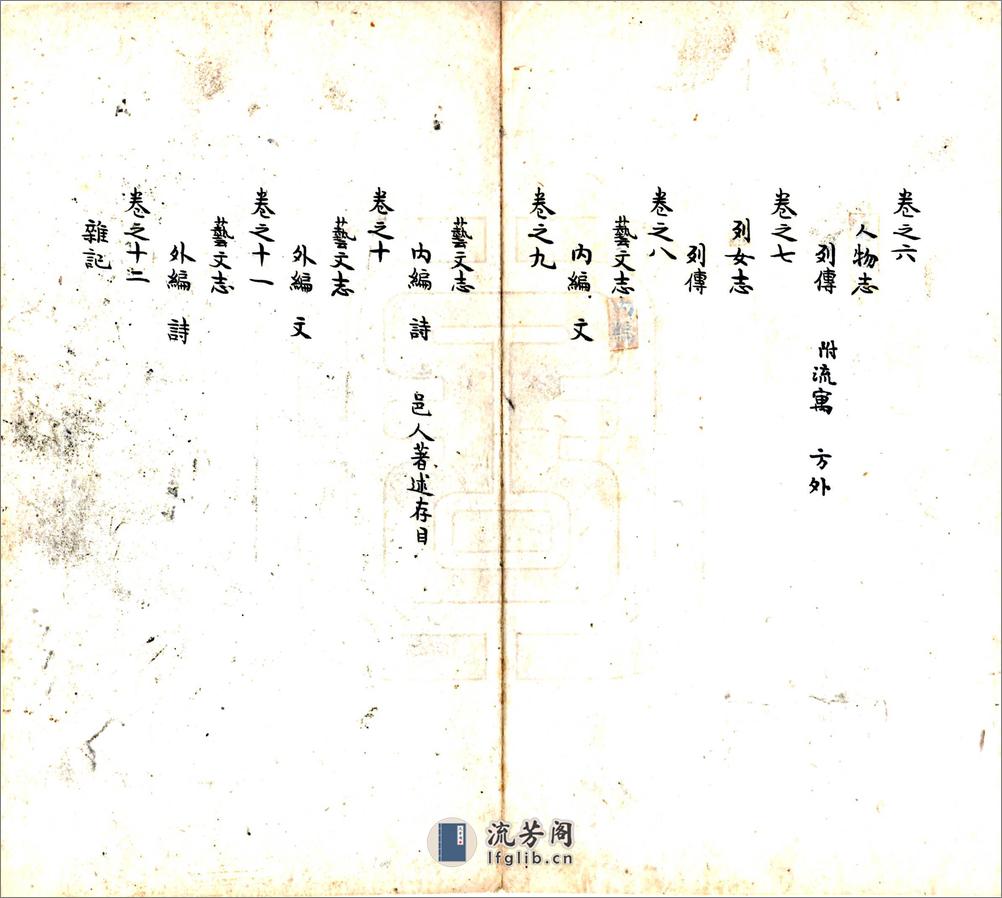 卷之六
人物志
列傳 附流寓 方外
卷之七
列女志
列傳
卷之八
藝文志
內編 文
卷之九
藝文志
內編 詩 邑人著述存目
卷之十
藝文志
外編 文
卷之十一
藝文志
外編 詩
卷之十二
雜記
流芳阁
lfglib.cn